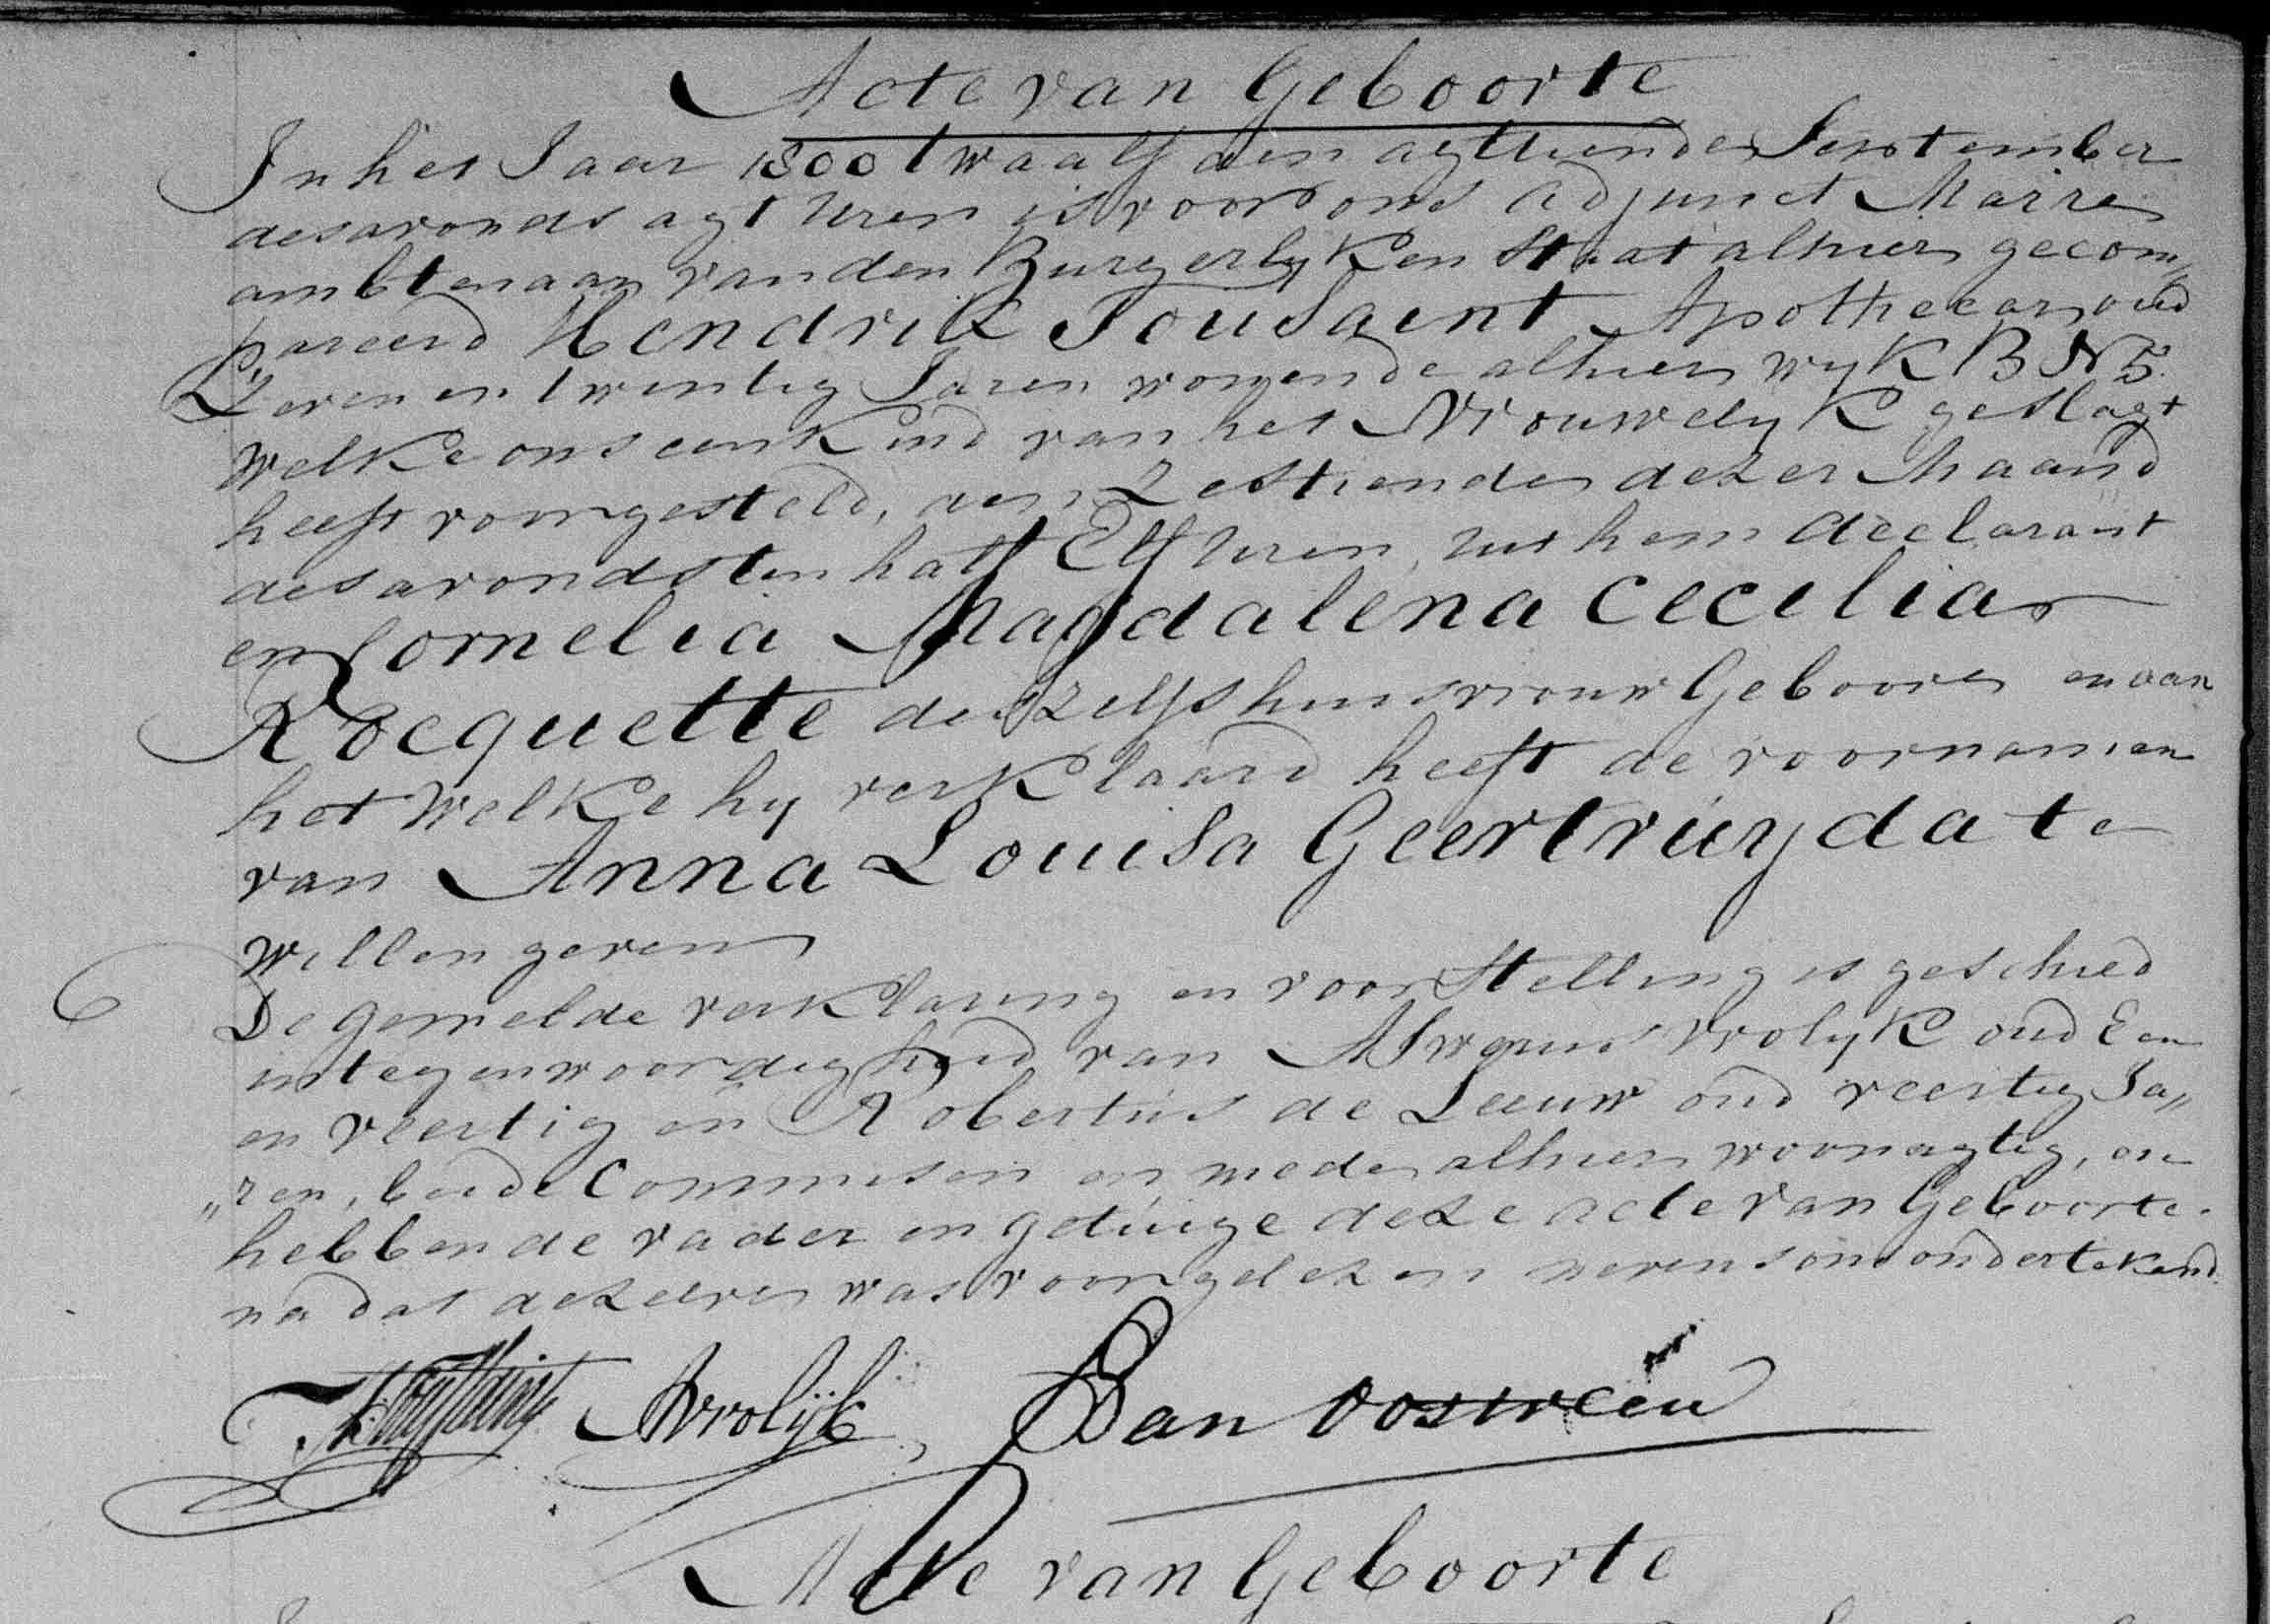 Acte van Geboorte
In het Jaar 1800 twaalf den agttiende September
des avonds agt uren is voor ons adjunct Maire
ambtenaar van den Burgerlyken Staat alhier gecom„
pareerd Hendrik Tousaint Apothecar oud
Zeven en twintig Jaren wonende alhier wyk B N 5.
welke ons een Kind van het Vrouwelyk geslagt
heeft voorgesteld, den Zestiende dezer Maand
des avonds ten half Elf uren, uit hem declarant
en Cornelia Magdalena Cecilia
Rocquette deszelfs huisvrouw Gebooren en aan
het welke hy verklaard heeft de voornamen
van Anna Louisa Geertruyda te
willen geven
De gemelde verklaring en voorstelling is geschied
in tegenwoordigheid van Vrolyk oud Een
en veertig en Robertus de Leeuw oud veertig Ja„
„ren, beide Commisen en mede alhier woonagtig, en
hebben de vader en getuige deze acte van Geboorte.
na dat dezelve was voorgelezen nevens ons ondertekend.
AVrolijk
Van Oosterveen
Acte van Geboorte